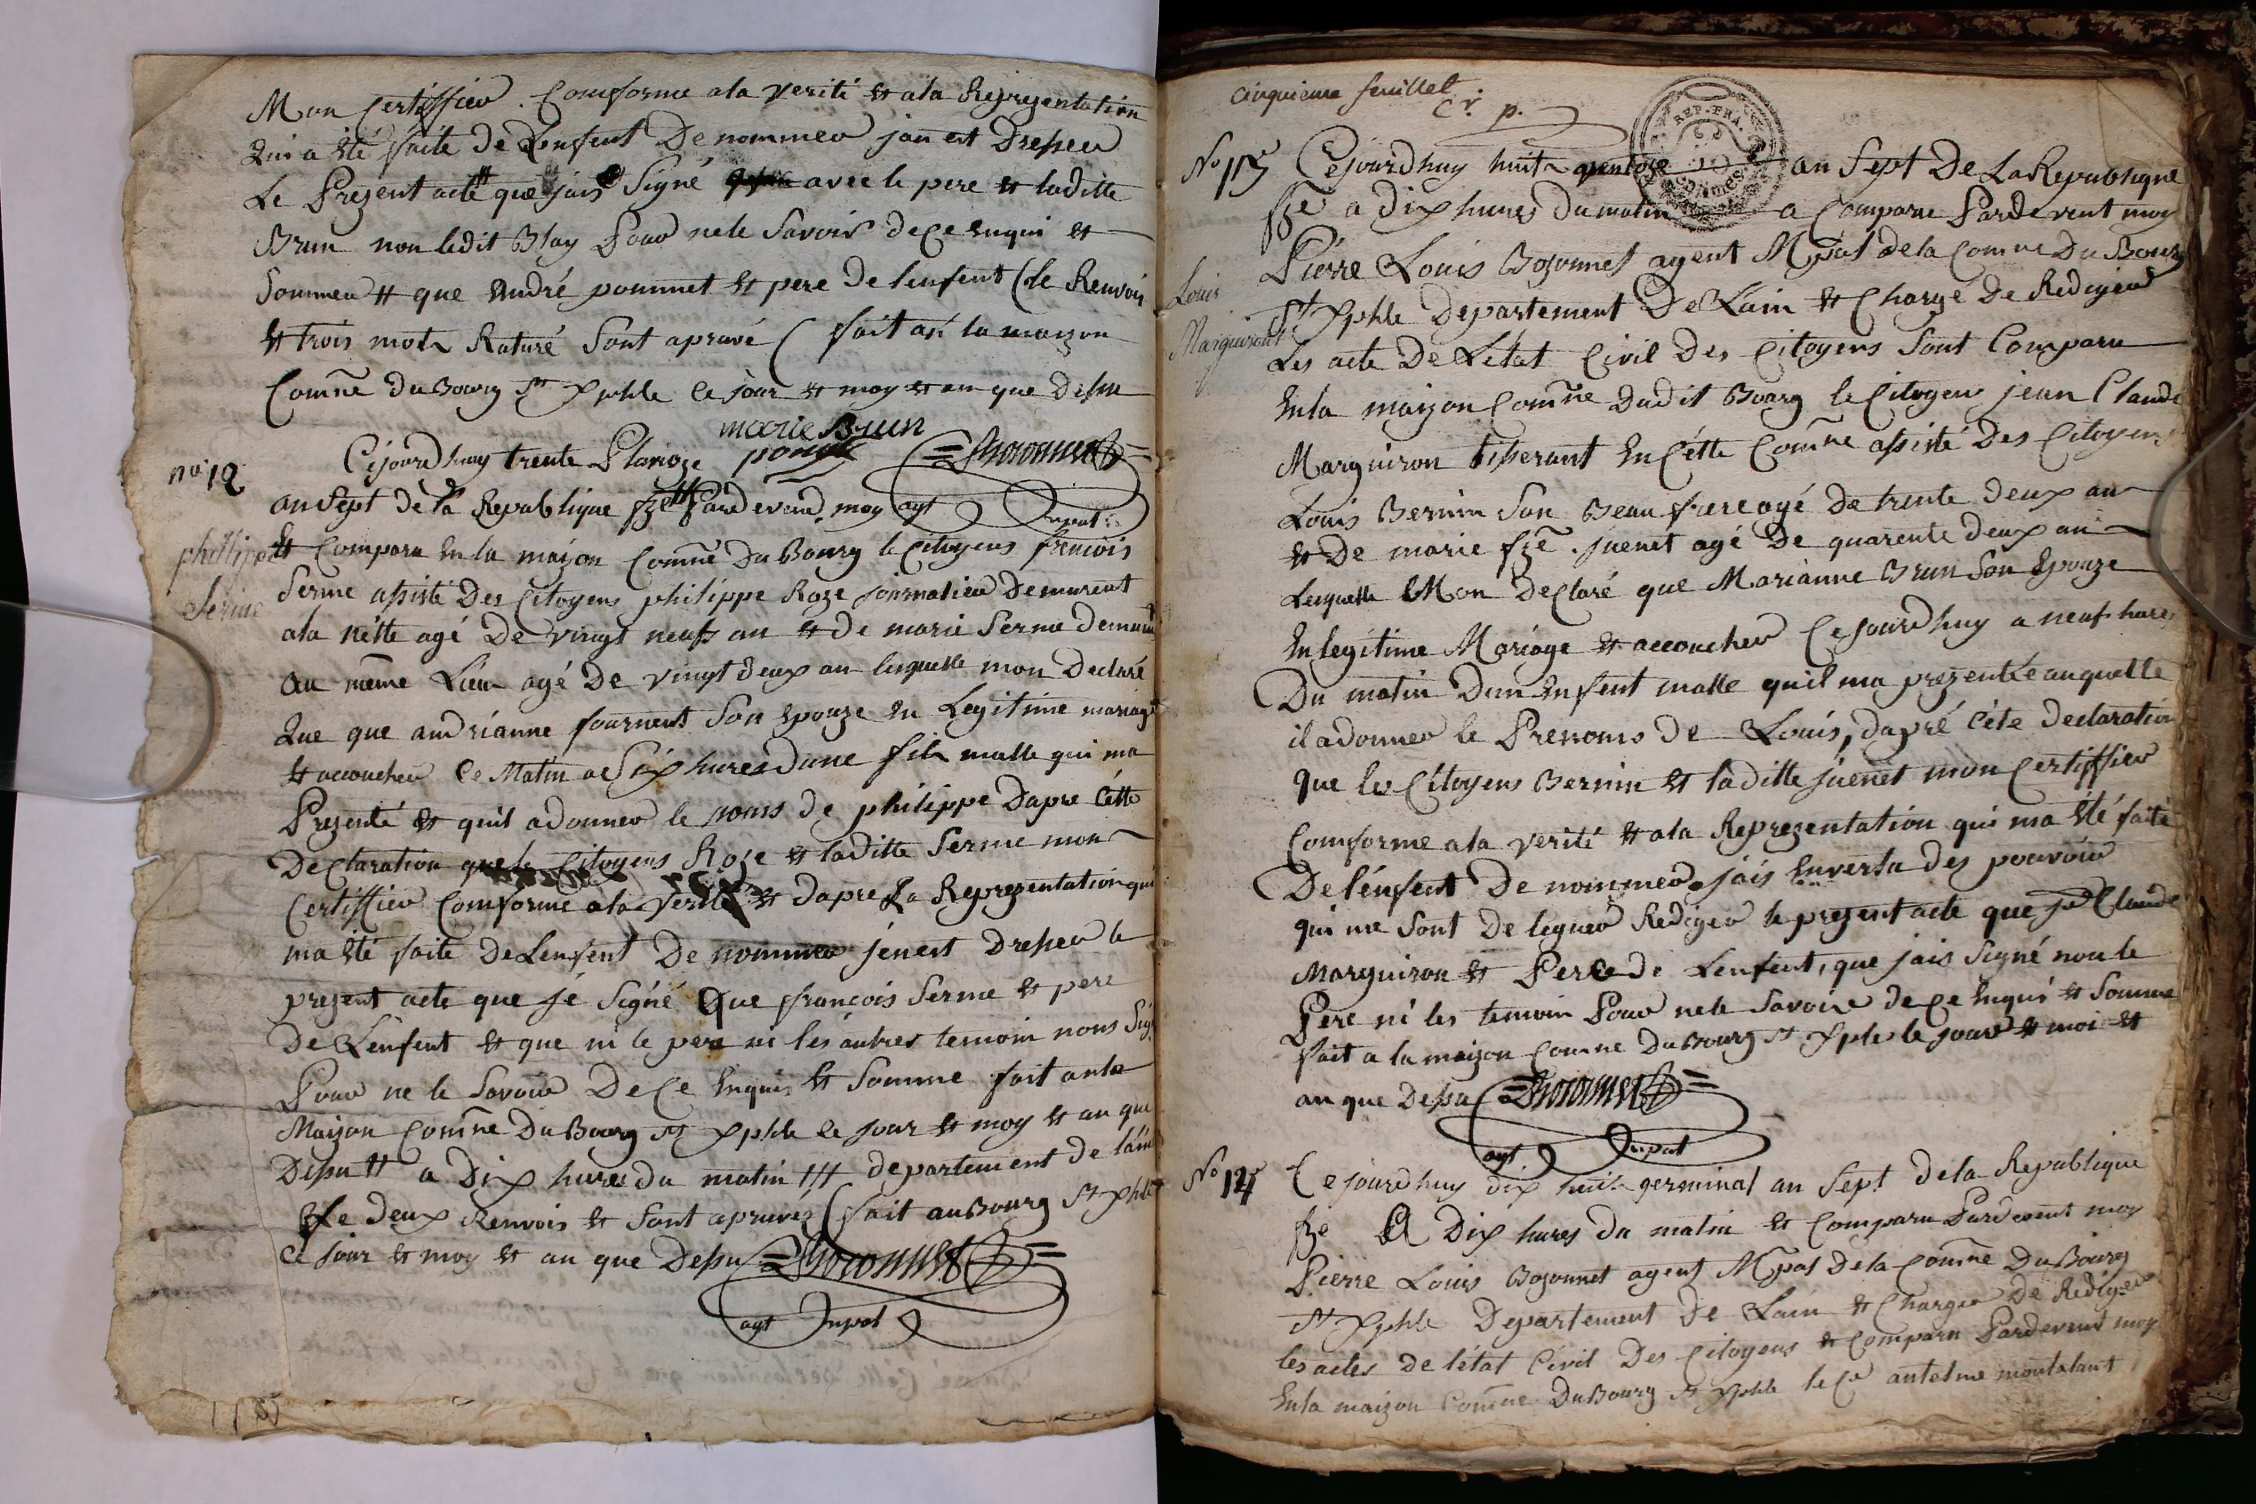 Mon Certiffier. Comforme ala verité et ala Reprezentation
Qui a été faite de Lenfent De nommer jan est Dresser
Le Prezent acte que jais Signé avec le pere et laditte
Brun non ledit Blay Pour nele Savoir de Ce Enqui et
Sommer # que André pommet et pere De lenfent (le Renvois
et trois mots Raturé Sont apruvé ( fait as la maizon
Comñe du Bourg St Xphle Ce jour et moy et an que Dessu
marie Brun
pomet
=Bozonnet=
agt mpal
no 12
philipe
Serme
Cejourdhuy trente Plurioze
an Sept de la Republique fze Pardevend moy
et Comparu En la maizon Comñe Du Bourg le Citoyens frencois
Serme assisté Des Citoyens philippe Roze journalier Demeurent
ala nétte agé De vingt neufs an et de marie Serme Demeurent
au même Lieu agé De vingt deux an lesquelle mon Declaré
Que que andrianne fournent Son Epouze en Legitime mariage
et accoucher Ce Matin a Six hures Dune fils malle qui ma
Prezenté et quil adonner le noms de philippe Dapre Cétte
Declaration que le Citoyens Roze et laditte Serme mon
Certiffier Comforme ala verité et dapre La Reprezentation qui
ma été faite De Lenfent De nommer jenest Dresser le
prezent acte que jé Signé Que francois Serme et pere
De Lenfent et que ni le pere ni les autres temoin nons Sig
Pour ne le Savoir De Ce Enquis et Somme fait anla
Maizon Comñe Du Bourg St Xphle le jour et moy et an que
Dessu # a Dix hures du matin ### departement de lain
Le deux Renvois et Sont apruvés ( fait au Bourg St Xphle
Ce jour et moy et an que Dessu =Bozonnet=
agt mpal
cinquieme feuillet
cr. p.
REP. FRA.
No 113
Louis
Marguiront
Cejourdhuy huit ventoze an Sept De La Republique
fze a dix hures du matin a Comparue Pardevent moy
Piérre Louis Bozonnet agent Mpal de la Comne Du Bourg
St Xphle Departement De Lain et Chargé De Rediger
Les acte De Létat Civil Des Citoyens Sont Comparu
En la maizon Comñe Dudit Bourg le Citoyens jean Claude
Marguiron tisserant En Cétte Comñe assisté Des Citoyens
Louis Bernin Son Beau frere agé De trente deux an
et De marie fzé. juenet agé De quarente deux an
Lesquelle Mon Declaré que Marianne Brun Son Epouze
En legitime Mariage et accoucher Cejourdhuy a neuf hures
Du matin Dun Enfent malle quil ma prezentée auquelle
il adonner le Prenoms de Louis, dapré Céte declaration
que les Citoyens Bernin et laditte juenet mon Certiffier
Comforme ala verité et ala Reprezentation qui ma été faite
De lénfent De nommer jais Enverta des pouvoir
qui me Sont De leguer Rediger le prezent acte que je Claude
Marguiron et Pere de Lenfent, que jais Signé non le
Pere ni les temoin Pour nele Savoir de Ce Enqui et Somme
fait a la maizon Comne Du Bourg St Xphle le jour et moi et
an que Dessu =Bozonnet=
agt mpal
No 124
Cejourdhuy dix huit germinal an Sept dela Republique
fze a Dix hures du matin et Comparu Pardevent moy
Pierre Louis Bozonnet agent Mpal De la Comñe Du Bourg
St Xphle Departement De Lain et Charger De Rediger
les actes De létat Civil Des Citoyens et Comparu Pardevent moy
En la maizon Comñe Du Bourg St Xphle le Cen antelme montalant